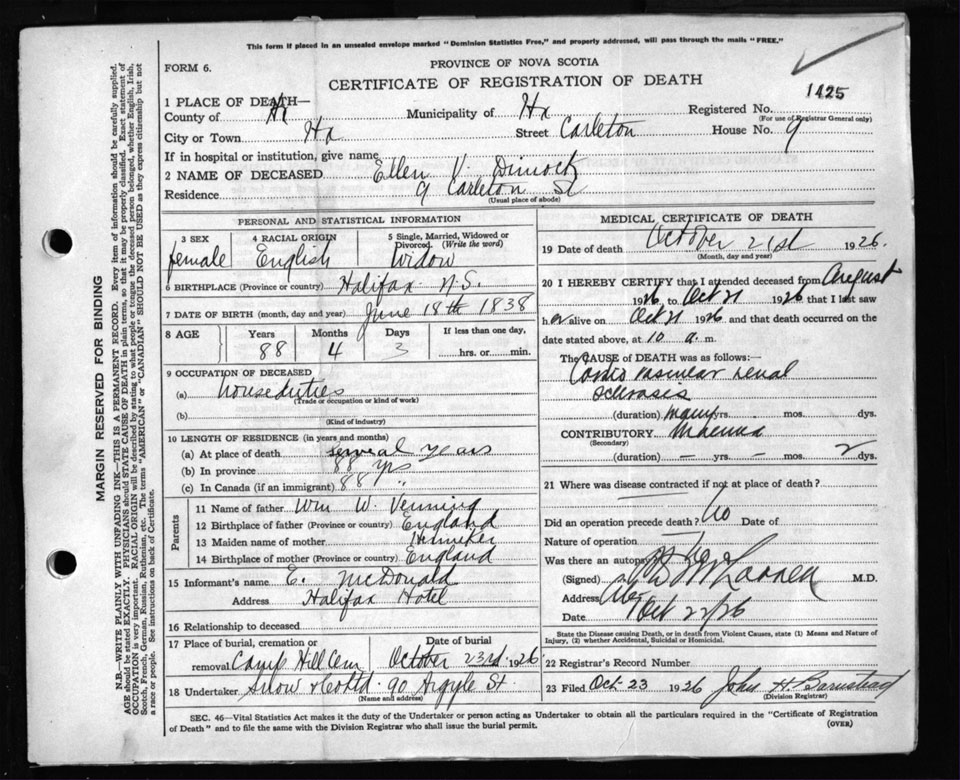 This form if placed in an unsealed envelope marked "Dominion Statistics Free," and properly addressed, will pass through the mails "FREE."
FORM 6.
PROVINCE OF NOVA SCOTIA
CERTIFICATE OF REGISTRATION OF DEATH
1425
1 PLACE OF DEATH—
County of Hx Municipality of Hx Registered No.
(For use of Registrar General only)
City or Town Hx Street Carleton House No. 9
If in hospital or institution, give name
2 NAME OF DECEASED Ellen V Dimock
Residence 9 Carleton St
(Usual place of abode)
PERSONAL AND STATISTICAL INFORMATION
3 SEX 4 RACIAL ORIGIN 5 Single, Married, Widowed or Divorced. (Write the word)
female English Widow
6 BIRTHPLACE (Province or country) Halifax N.S.
7 DATE OF BIRTH (month, day and year) June 18th 1838
8 AGE Years Months Days If less than one day,
88 4 3 hrs. or min.
9 OCCUPATION OF DECEASED
(a) house duties
(Trade or occupation or kind of work)
(b)
(Kind of industry)
10 LENGTH OF RESIDENCE (in years and months)
(a) At place of death several years
(b) In province 88 yrs
(c) In Canada (if an immigrant) 88 "
Parents
11 Name of father Wm W. Venning
12 Birthplace of father (Province or country) England
13 Maiden name of mother Henniker
14 Birthplace of mother (Province or country) England
15 Informant's name E. McDonald
Address Halifax Hotel
16 Relationship to deceased
17 Place of burial, cremation or Date of burial
removal Camp Hill Cem October 23rd 1926
18 Undertaker Snow & Co Ltd. 90 Argyle St.
(Name and address)
MEDICAL CERTIFICATE OF DEATH
19 Date of death October 21st 1926.
(Month, day and year)
20 I HEREBY CERTIFY that I attended deceased from August
1926 to Oct 21 1926 that I last saw
her alive on Oct 21 1926 and that death occurred on
date stated above, at 10 a. m.
The CAUSE OF DEATH was as follows:—
Cardio vascular renal
sclerosis
(duration) many yrs. mos. dys.
CONTRIBUTORY
(Secondary)
(duration) — yrs. — mos. 2 dys.
21 Where was disease contracted if not at place of death?
Did an operation precede death? No Date of
Nature of operation
Was there an autopsy
(Signed) M.D.
Address
Date Oct 22/26
State the Disease causing Death, or in death from Violent Causes, state (1) Means and Nature of Injury, (2) whether Accidental, Suicidal or Homicidal.
22 Registrar's Record Number
23 Filed Oct 23 1926 John H. Barnstead
(Division Registrar)
SEC. 46—Vital Statistics Act makes it the duty of the Undertaker or person acting as Undertaker to obtain all the particulars required in the "Certificate of Registration
of Death" and to file the same with the Division Registrar who shall issue the burial permit.
(OVER)
MARGIN RESERVED FOR BINDING
N.B.—WRITE PLAINLY WITH UNFADING INK—THIS IS A PERMANENT RECORD. Every item of information should be carefully supplied.
AGE should be stated EXACTLY. PHYSICIANS should STATE CAUSE OF DEATH in plain terms, so that it may be properly classified. Exact statement of
OCCUPATION is very important. RACIAL ORIGIN will be described by stating to what people or tongue the deceased person belonged, whether English, Irish,
Scotch, French, German, Russian, Ruthenian, etc. The terms "AMERICAN" or "CANADIAN" SHOULD NOT BE USED as they express citizenship but not
a race or people. See instructions on back of Certificate.